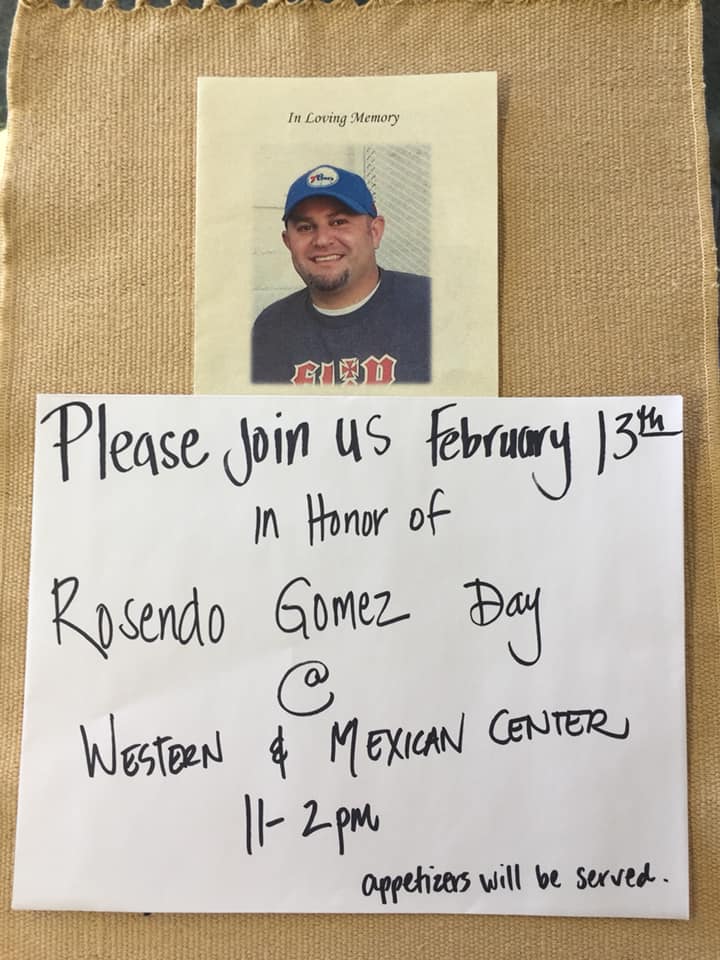 In Loving Memory
76ers
Please Join us February 13th
In Honor of
Rosendo Gomez Day
@
WESTERN & MEXICAN CENTER
11-2pm
appetizers will be served.